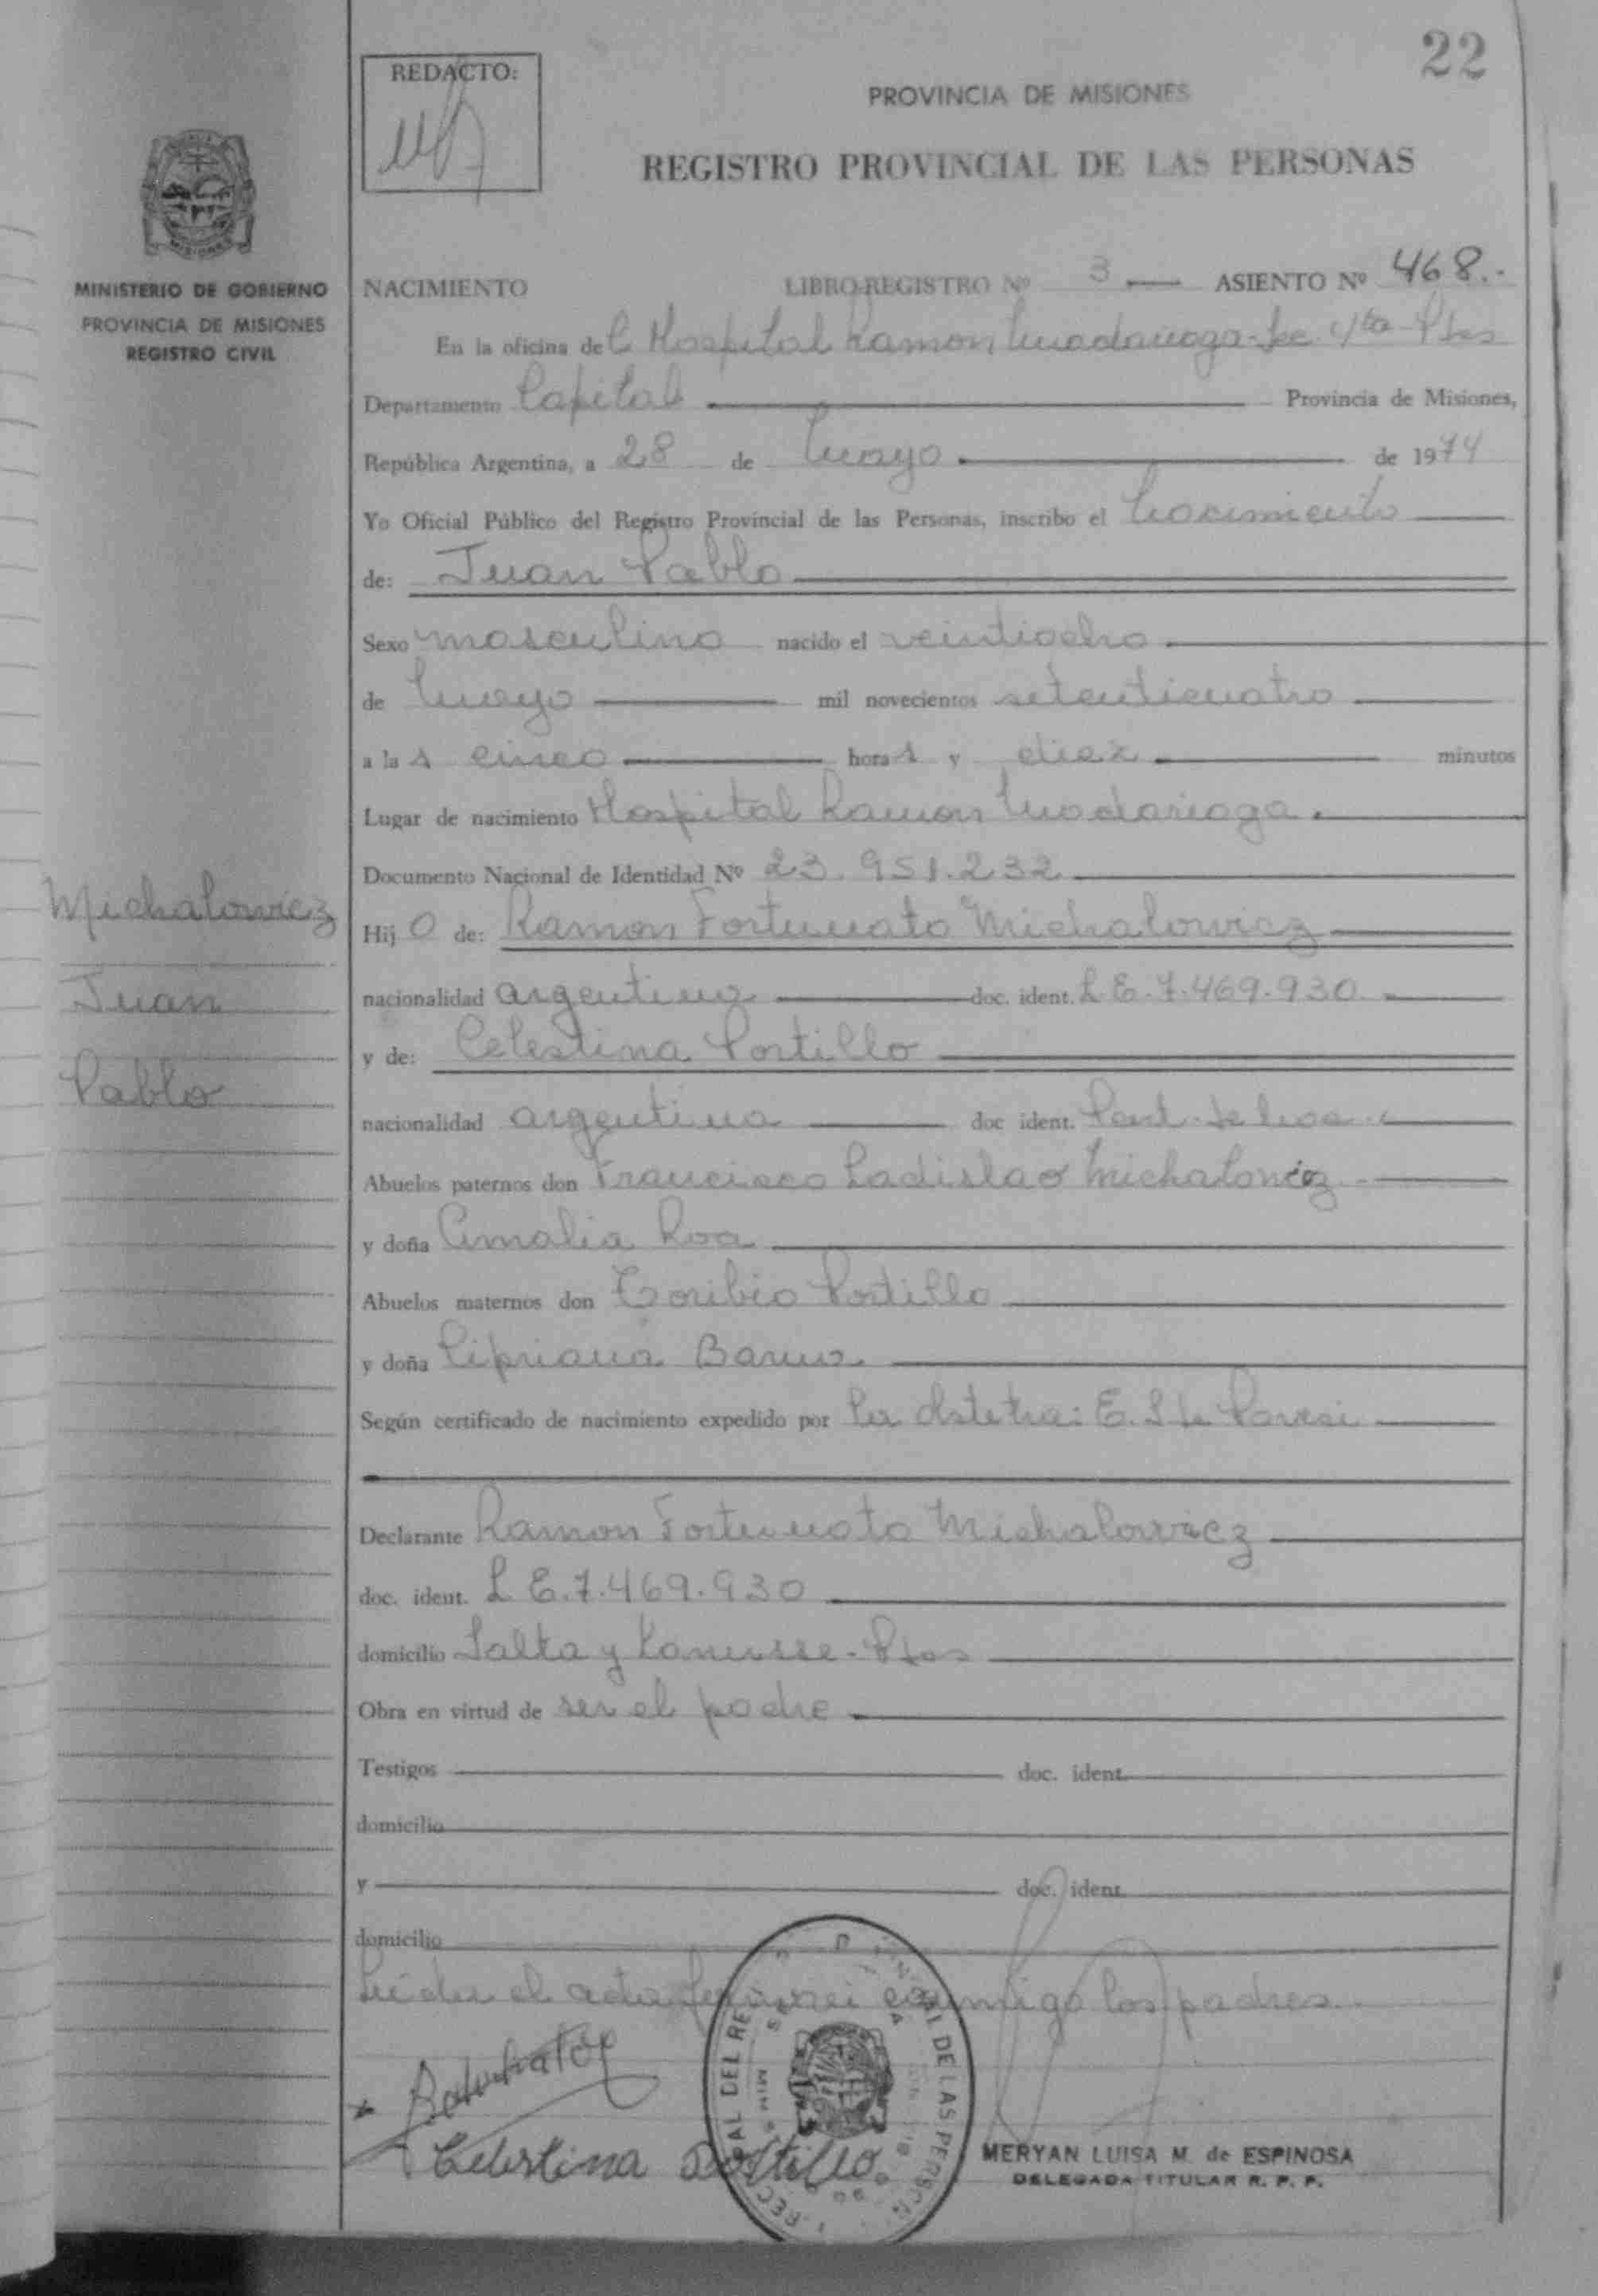 22
REDACTO:
PROVINCIA DE MISIONES
REGISTRO PROVINCIAL DE LAS PERSONAS
MISIONES
MINISTERIO DE GOBIERNO
PROVINCIA DE MISIONES
REGISTRO CIVIL
NACIMIENTO LIBRO-REGISTRO Nº 3 — ASIENTO Nº 468.-
En la oficina del Hospital Ramon Madariaga-Sec. 4ta-Pdas
Departamento Capital Provincia de Misiones,
República Argentina, a 28 de Mayo de 1974
Yo Oficial Público del Registro Provincial de las Personas, inscribo el Nacimiento
de: Juan Pablo
Sexo masculino nacido el veintiocho
de Mayo mil novecientos setenticuatro
a las cinco horas y diez minutos
Lugar de nacimiento Hospital Ramon Madariaga.
Documento Nacional de Identidad Nº 23.951.232
Michalowicz
Juan
Pablo
Hijo de: Ramon Fortunato Michalowicz
nacionalidad argentina doc. ident. L.E.7.469.930.
y de: Celestina Portillo
nacionalidad argentina doc ident.
Abuelos paternos don Francisco Ladislao Michalowicz
y doña Amalia Roa
Abuelos maternos don Toribio Portillo
y doña Cipriana
Según certificado de nacimiento expedido por la obstetra: E.
Declarante Ramon Fortunato Michalowicz
doc. ident. L.E.7.469.930
domicilio Salta y Lanusse-Pdas
Obra en virtud de ser el padre
Testigos doc. ident.
domicilio
y doc. ident.
domicilio
Leida el acta firman conmigo los padres.
Celestina Portillo
MERYAN LUISA M. de ESPINOSA
DELEGADA TITULAR R. P. P.